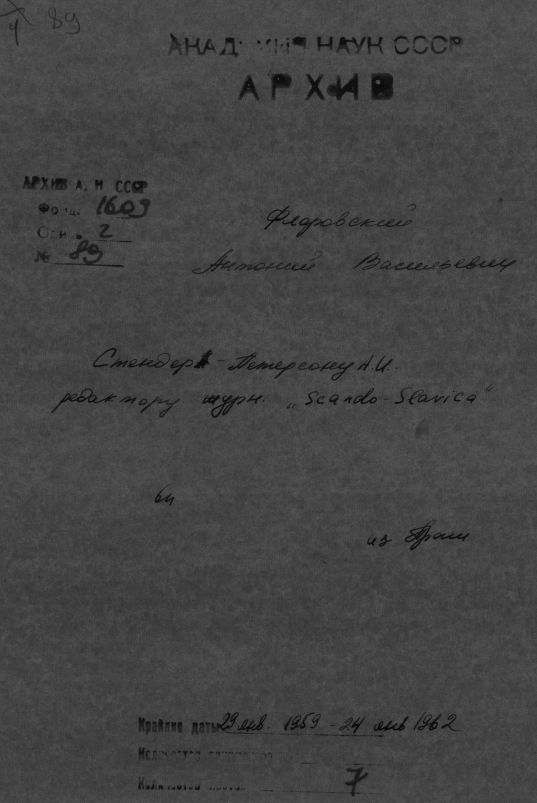 89
4
АКАДЕМИЯ НАУК СССР
АРХИВ
АРХИВ А. Н СССР
Фонд. 1609
Оп. 2
№ 89
Флоровский
Антоний Васильевич
Стендер-Петерсону А.И.
редактору журн. „Scando-Slavica"
6п
из Праги
Крайние даты 29 янв. 1959 - 24 янв 1962
Количество
Количество листов 7